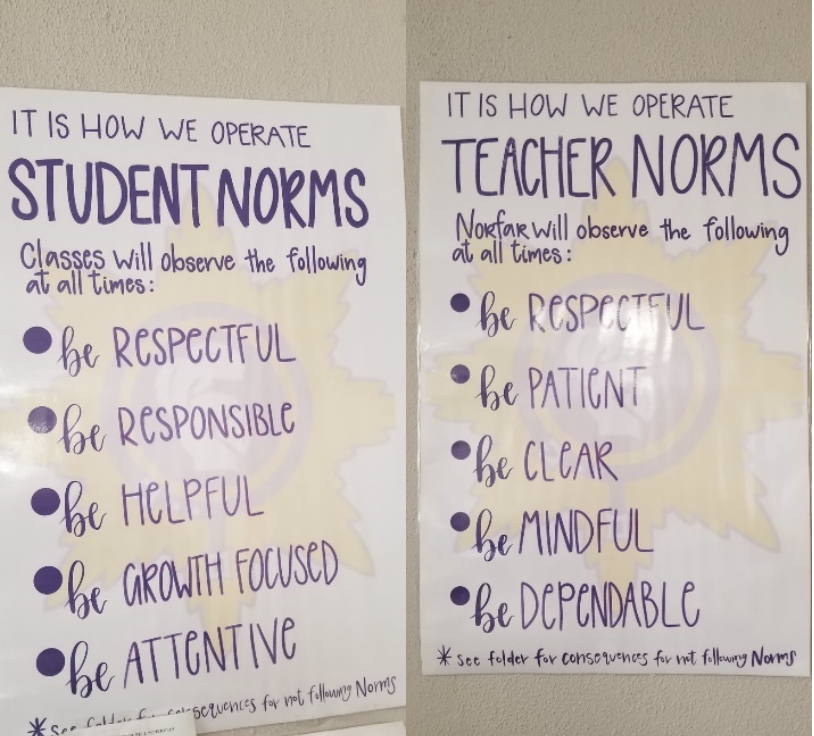 IT IS HOW WE OPERATE
STUDENT NORMS
Classes will observe the following
at all times:
be RESPECTFUL
be RESPONSIBLE
be HELPFUL
be GROWTH FOCUSED
be ATTENTIVE
*See folder for consequences for not following Norms
IT IS HOW WE OPERATE
TEACHER NORMS
Norfar will observe the following
at all times:
be RESPECTFUL
be PATIENT
be CLEAR
be MINDFUL
be DEPENDABLE
*see folder for consequences for not following Norms